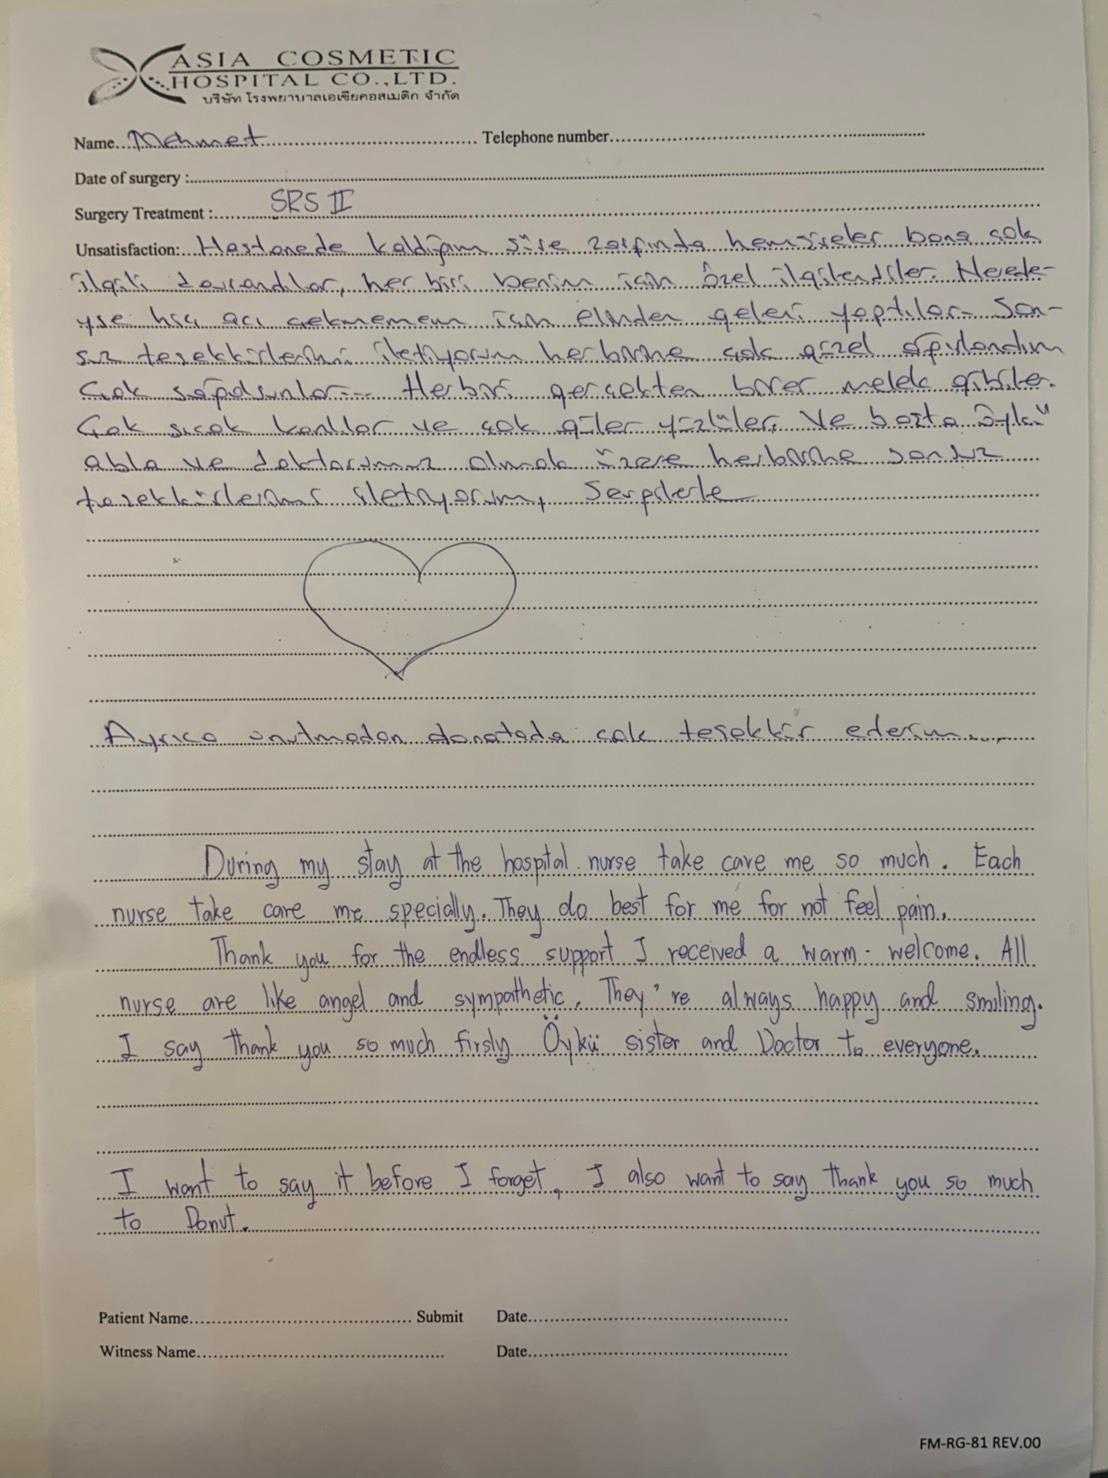 ASIA COSMETIC
HOSPITAL CO.,LTD.
บริษัท โรงพยาบาลเอเซียคอสเมติก จำกัด
Name..Mehmet.......... Telephone number..........
Date of surgery :..........
Surgery Treatment :.......... SRS II
Unsatisfaction: Hastanede kaldığım süre zarfında hemşireler bana çok
ilgili davrandılar, her biri benim için özel ilgilendiler. Nerede-
yse hiç acı çekmemem için elinden geleni yaptılar. Son-
suz teşekkürlerimi iletiyorum herbirine çok güzel ağırlandım
Çok sağolsunlar... Herbiri gerçekten birer melek gibiler.
Çok sıcak kanlılar ve çok güler yüzlüler. Ve başta Öykü
abla ve doktorumuz olmak üzere herbirine sonsuz
teşekkürlerimi iletiyorum,
Ayrıca unutmadan donatada çok teşekkür ederim....
During my stay at the hospital nurse take care me so much. Each
nurse take care me specially. They do best for me for not feel pain.
Thank you for the endless support I received a warm - welcome. All
nurse are like angel and sympathetic. They're always happy and smiling.
I say thank you so much firsly Öykü sister and Doctor to everyone.
I want to say it before I forget, I also want to say thank you so much
to Donut.
Patient Name.......... Submit Date..........
Witness Name.......... Date..........
FM-RG-81 REV.00